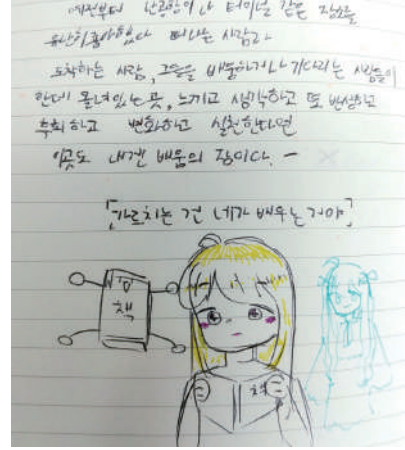 예전부터 나 터미널 같은 장소를
유난히 좋아했다 떠나는 사람과
도착하는 사람, 그들을 배웅하거나 기다리는 사람들이
한데 몰려있는 곳, 느끼고 생각하고 또 반성하고
후회하고 변화하고 실천한다면
이곳도 내겐 배움의 장이다. -
[가르치는 건 네가 배우는 거야]
책